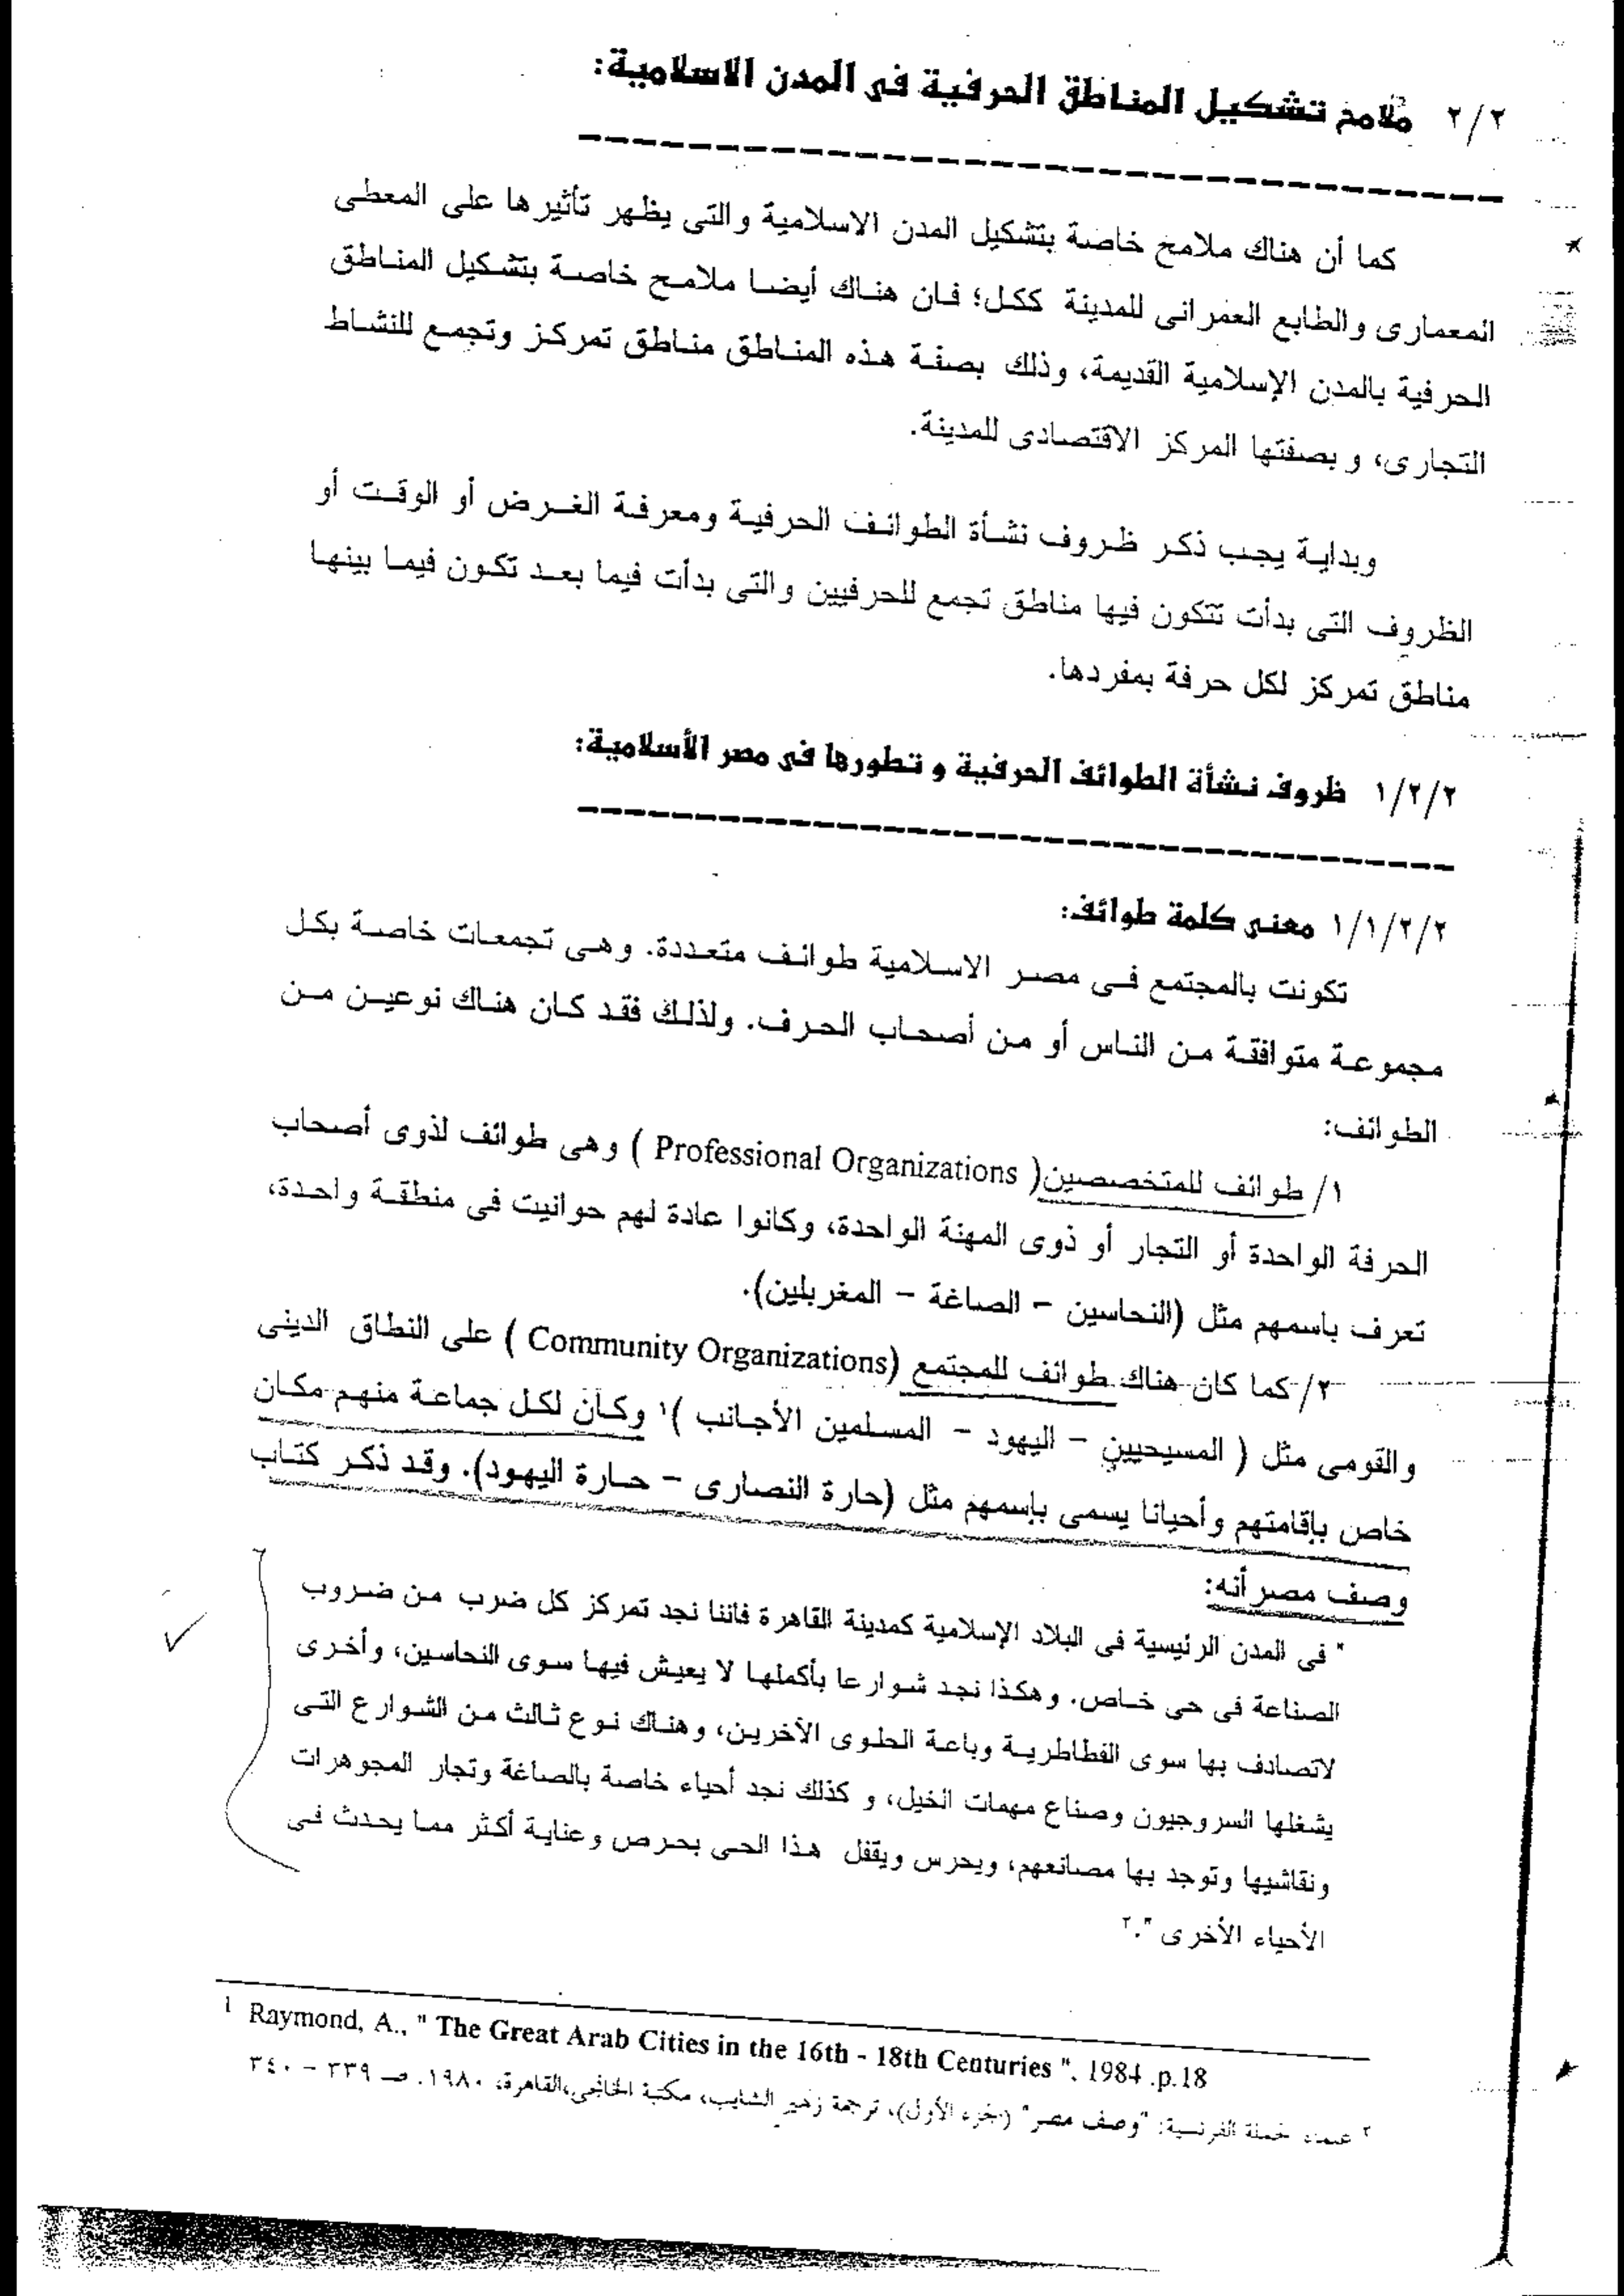 ٢/٢ ملامح تشكيل المناطق الحرفية فى المدن الاسلامية:
كما أن هناك ملامح خاصة بتشكيل المدن الاسلامية والتى يظهر تأثيرها على المعطى
المعمارى والطابع العمرانى للمدينة ككل؛ فان هناك أيضا ملامح خاصة بتشكيل المناطق
الحرفية بالمدن الإسلامية القديمة، وذلك بصفة هذه المناطق مناطق تمركز وتجمع للنشاط
التجارى، وبصفتها المركز الاقتصادى للمدينة.
وبداية يجب ذكر ظروف نشأة الطوائف الحرفية ومعرفة الغرض أو الوقت أو
الظروف التى بدأت تتكون فيها مناطق تجمع للحرفيين والتى بدأت فيما بعد تكون فيما بينها
مناطق تمركز لكل حرفة بمفردها.
١/٢/٢ ظروف نشأة الطوائف الحرفية و تطورها فى مصر الأسلامية:
١/١/٢/٢ معنى كلمة طوائف:
تكونت بالمجتمع فى مصر الاسلامية طوائف متعددة. وهى تجمعات خاصة بكل
مجموعة متوافقة من الناس أو من أصحاب الحرف. ولذلك فقد كان هناك نوعين من
الطوائف:
١/ طوائف للمتخصصين( Professional Organizations ) وهى طوائف لذوى أصحاب
الحرفة الواحدة أو التجار أو ذوى المهنة الواحدة، وكانوا عادة لهم حوانيت فى منطقة واحدة،
تعرف باسمهم مثل (النحاسين – الصاغة – المغربلين).
٢/ كما كان هناك طوائف للمجتمع (Community Organizations ) على النطاق الدينى
والقومى مثل ( المسيحيين – اليهود – المسلمين الأجانب )١ وكان لكل جماعة منهم مكان
خاص بإقامتهم وأحيانا يسمى بإسمهم مثل (حارة النصارى – حارة اليهود). وقد ذكر كتاب
وصف مصر أنه:
" فى المدن الرئيسية فى البلاد الإسلامية كمدينة القاهرة فاننا نجد تمركز كل ضرب من ضروب
الصناعة فى حى خاص. وهكذا نجد شوارعا بأكملها لا يعيش فيها سوى النحاسين، وأخرى
لاتصادف بها سوى الفطاطرية وباعة الحلوى الآخرين، وهناك نوع ثالث من الشوارع التى
يشغلها السروجيون وصناع مهمات الخيل، و كذلك نجد أحياء خاصة بالصاغة وتجار المجوهرات
ونقاشيها وتوجد بها مصانعهم، ويحرس ويقفل هذا الحى بحرص وعناية أكثر مما يحدث فى
الأحياء الأخرى ".٢
1 Raymond, A., " The Great Arab Cities in the 16th - 18th Centuries ", 1984 .p.18
٢ علماء الحملة الفرنسية: "وصف مصر" (الجزء الأول)، ترجمة زهير الشايب، مكتبة الخانجى،القاهرة، ١٩٨٠. صـ ٣٣٩ – ٣٤٠